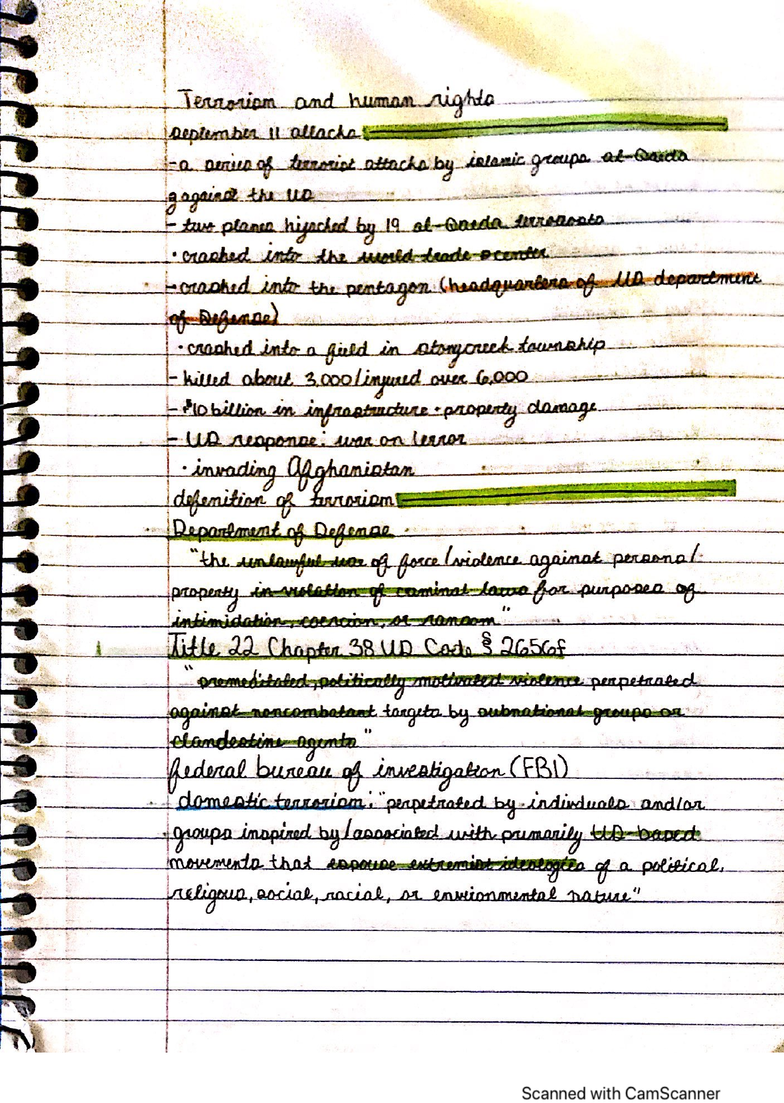 Terrorism and human rights
september 11 attacks
-a series of terrorist attacks by islamic groups al-Qaeda
against the US
- two planes hijacked by 19 al-Qaeda terrorosts
• crashed into the world trade center
-crashed into the pentagon (headquarters of US department
of Defense)
• crashed into a field in stonycreek township
- killed about 3,000/injured over 6,000
- $10 billion in infrastructure + property damage
- US response: war on terror
• invading Afghanistan
defenition of terrorism
Department of Defense
"the unlawful use of force/violence against persons/
property in violation of caminal laws for purposes of
intimidation, coercion, or ransom"
Title 22 Chapter 38 US Code § 2656f
"premeditated, politically motivated violence perpetrated
against noncombatant targets by subnational groups or
clandestine agents"
federal bureau of investigation (FBI)
domestic terrorism: "perpetrated by individuals and/or
groups inspired by/associated with primarily US-based
movements that espouse extremist ideologies of a political,
religous, social, racial, or envionmental nature"
Scanned with CamScanner